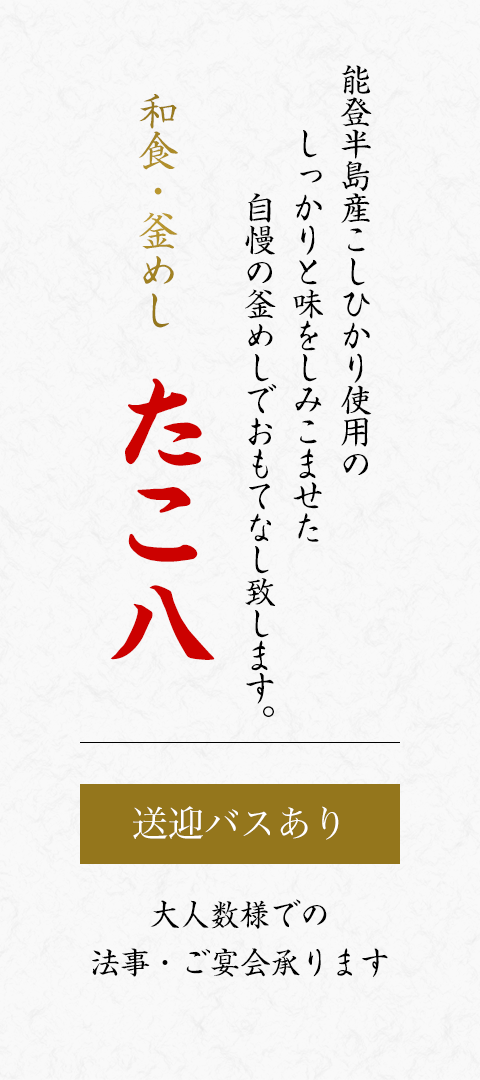 能登半島産こしひかり使用の
しっかりと味をしみこませた
自慢の釜めしでおもてなし致します。
和食・釜めし
たこ八
送迎バスあり
大人数様での
法事・ご宴会承ります